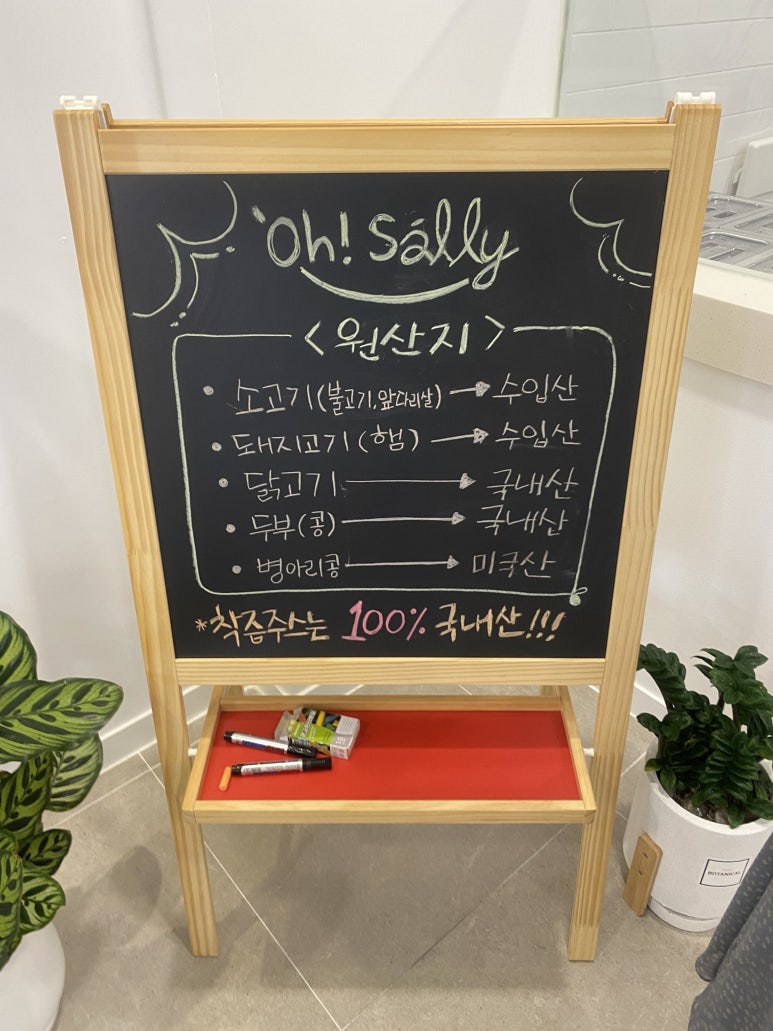 Oh! Sally
<원산지>
• 소고기(불고기.앞다리살) → 수입산
• 돼지고기(햄) → 수입산
• 닭고기 → 국내산
• 두부(콩) → 국내산
• 병아리콩 → 미국산
*착즙주스는 100% 국내산!!!
BOTANICAL